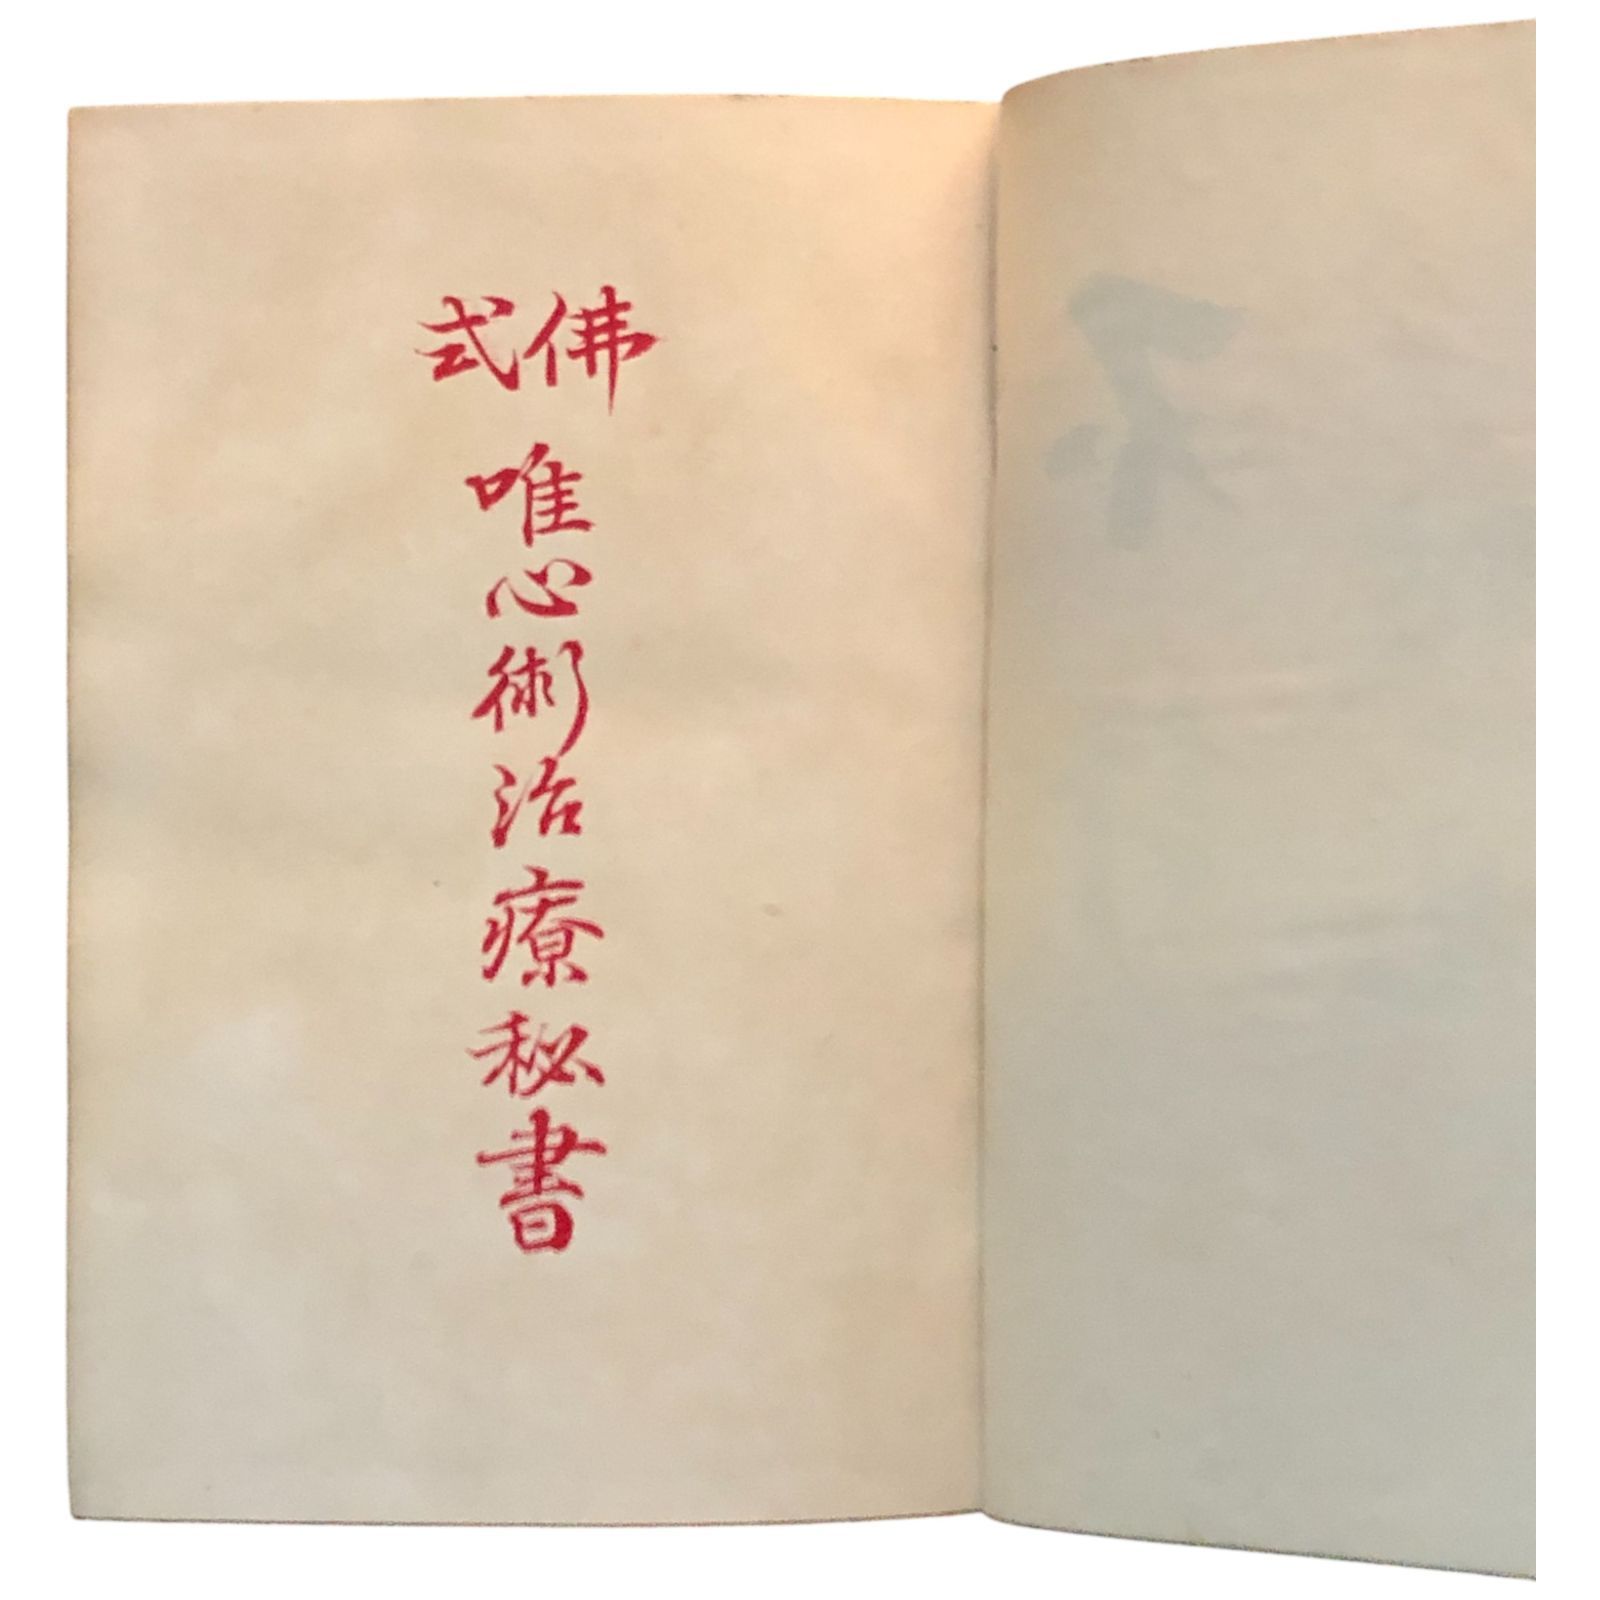 佛式
唯心術治療秘書